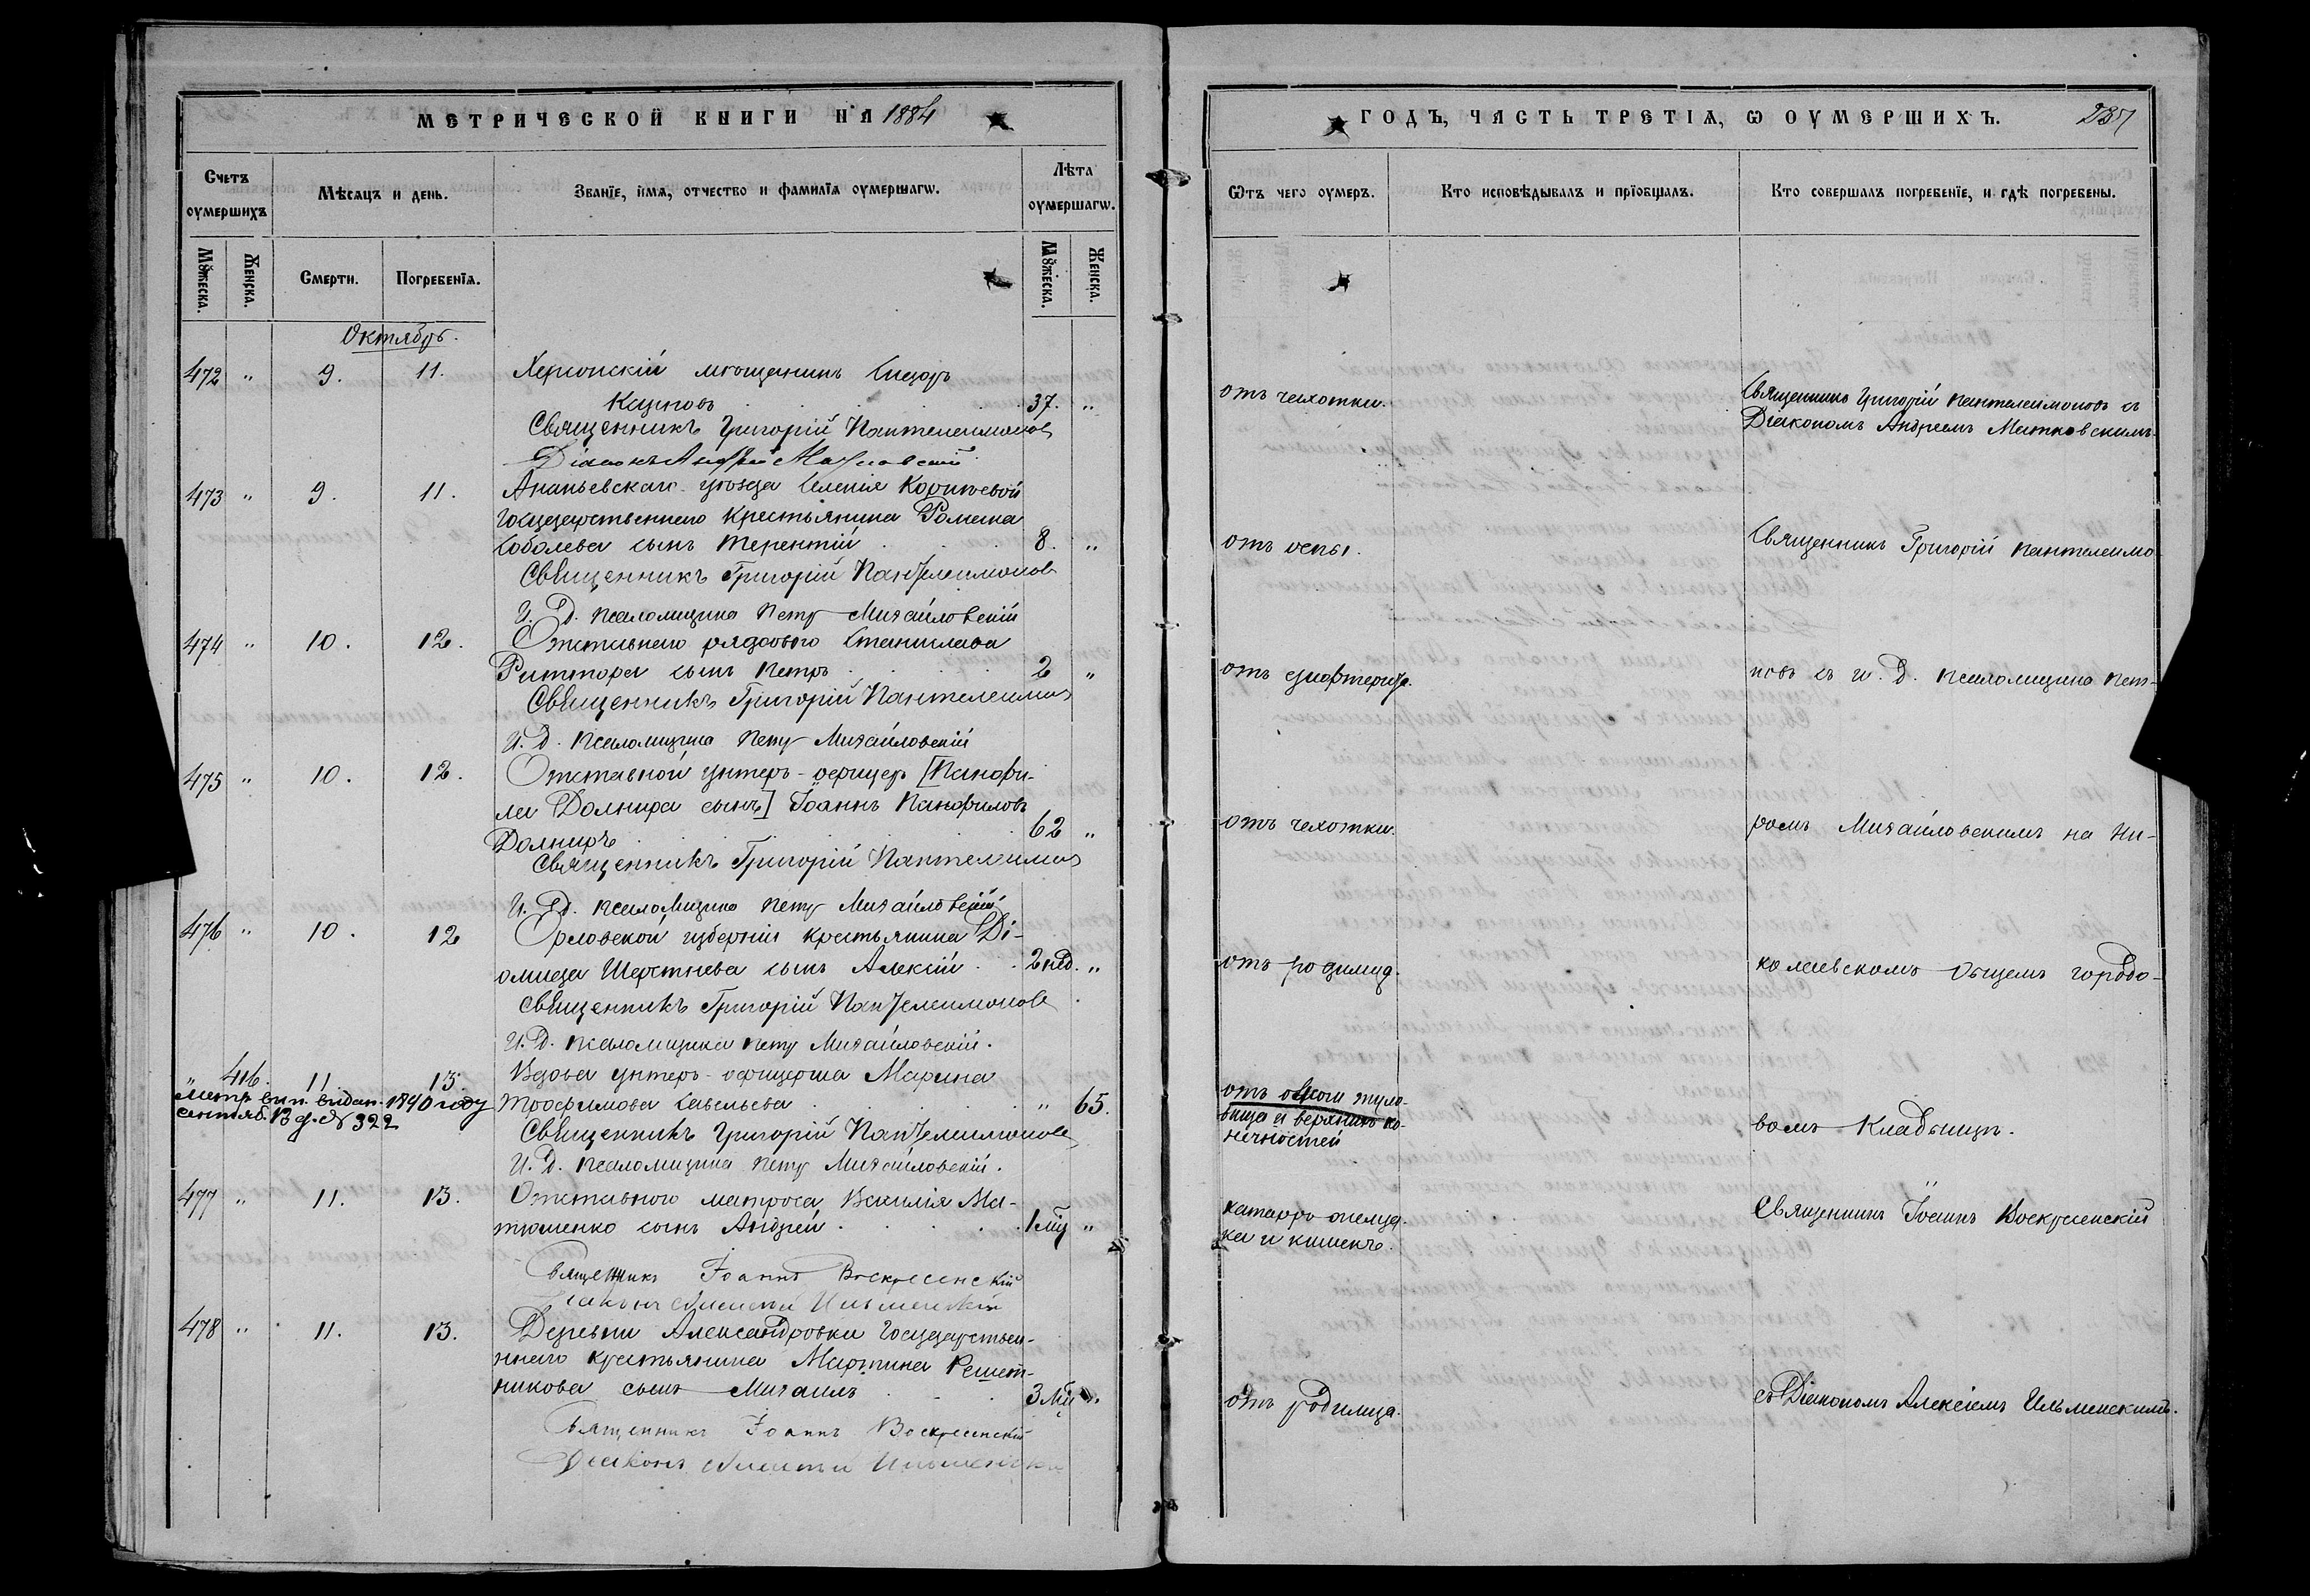 МЕТРИЧЕСКОЙ КНИГИ НА 1884
Счетъ оумершихъ
Мѣсяцъ и день.
Званїе, имя, отчество и фамилїя оумершагѡ.
Лѣта оумершагѡ.
Мꙋжеска.
Женска.
Смерти.
Погребенїя.
Мꙋжеска.
Женска.
Октябрь.
472 " 9. 11. Херсонскій мѣщанинъ
37. "
Священникъ Григорій Пантелеимонов
Діаконъ Андрей
473 " 9. 11. Ананьевскаго уѣзда селенія
Государственнаго крестьянина Романа
Соболева сынъ Терентій 8. "
Священникъ Григорій Пантелеимонов
И. Д. псаломщика Петръ Михайловскій
474 " 10. 12. Отставнаго рядового Станислава
Риттора сынъ Петръ 2 "
Священникъ Григорій Пантелеимон
И. Д. псаломщика Петръ Михайловскій
475 " 10. 12. Отставной унтеръ-офицеръ [Панфи-
ла Долнира сынъ] Іоаннъ Панфиловъ
Долниръ 62 "
Священникъ Григорій Пантелеимон
И. Д. псаломщика Петръ Михайловскій
476 " 10. 12 Орловской губерніи крестьянина Ді-
омида Шерстнева сынъ Алексій 2 нед. "
Священникъ Григорій Пантелеимонов
И. Д. псаломщика Петръ Михайловскій.
" 416. 11. 13. Вдова унтеръ-офицерша Марина
Метр. вып. видан. 1890 году Трофимова Савельева " 65.
сентяб. 13 д. № 322
Священникъ Григорій Пантелеимонов
И. Д. псаломщика Петръ Михайловскій.
477 " 11. 13. Отставного матроса Василія Ма-
тюшенко сынъ Андрей 1 мц "
Священникъ Іоаннъ Воскресенскій
Діаконъ Алексій Ильменскій
478 " 11. 13. Деревни Александровки Государствен-
ннаго крестьянина Мартина Решет-
никова сынъ Михаилъ 3 мц "
Священникъ Іоаннъ Воскресенскій
Діаконъ Алексій Ильменскій
ГОДЪ, ЧАСТЬ ТРЕТІЯ, Ѡ ОУМЕРШИХЪ. 237
Ѿтъ чего оумеръ.
Кто исповѣдывалъ и прїобщалъ.
Кто совершалъ погребенїе, и гдѣ погребены.
отъ чахотки.
Священникъ Григорій Пантелеимоновъ съ
Діакономъ Андреемъ Матковскимъ.
отъ оспы.
Священникъ Григорій Пантелеимо-
отъ дифтерита.
новъ съ и. Д. псаломщика Пет-
отъ чахотки.
ромъ Михайловскимъ на Ни-
отъ родимца.
колаевскомъ общемъ городо-
отъ ожоги туло-
вища и верхнихъ ко-
нечностей
вомъ кладбищѣ.
катарръ желуд-
ка и кишекъ.
Священникъ Іоаннъ Воскресенскій
отъ родимца.
съ Діакономъ Алексіемъ Ильменскимъ.